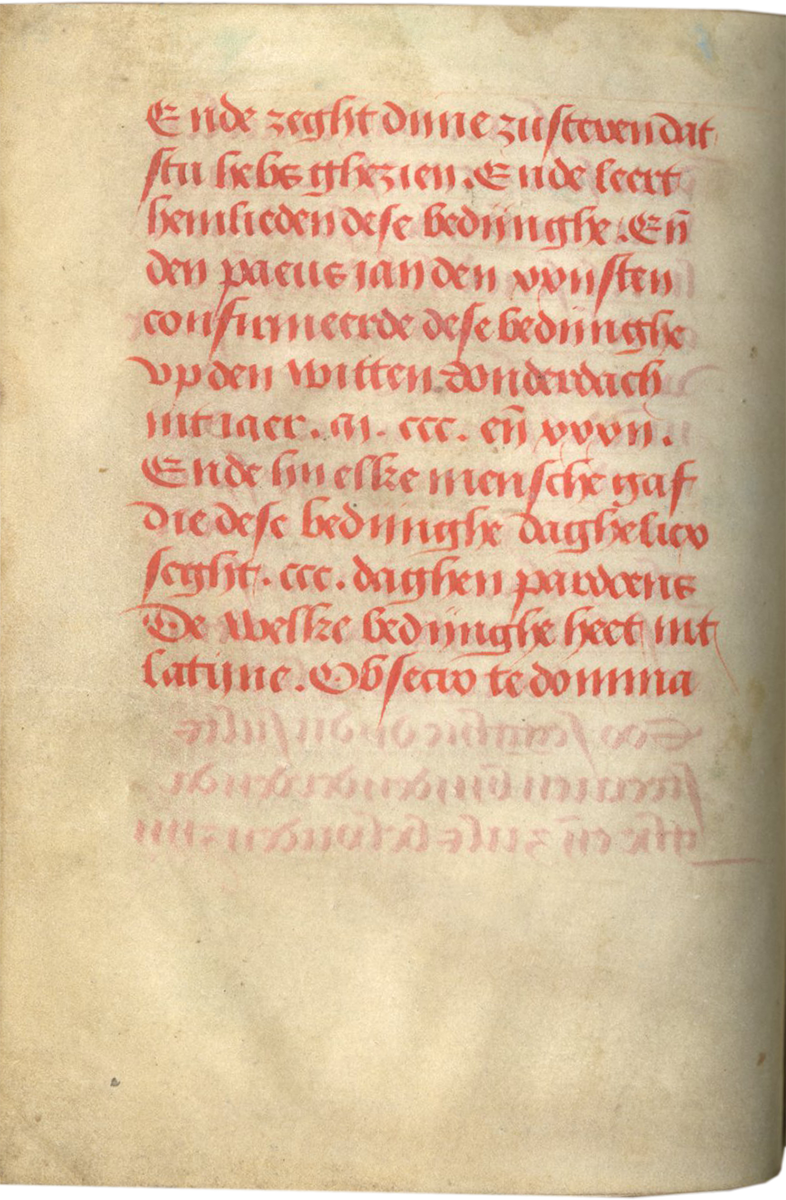 Ende zeght dijne zusteren dat
stu hebs ghezien. Ende leert
hemlieden dese bedijnghe. En̄
den paeus ian den xxijsten
confirmeerde dese bedijnghe
vp den witten donderdach
int iaer. M. ccc. en̄ xxxij.
Ende hu elke mensche gaf
die dese bedijnghe daghelicx
seght. ccc. daghen pardoens
De welke bedijnghe heet int
latijne. Obsecro te domina